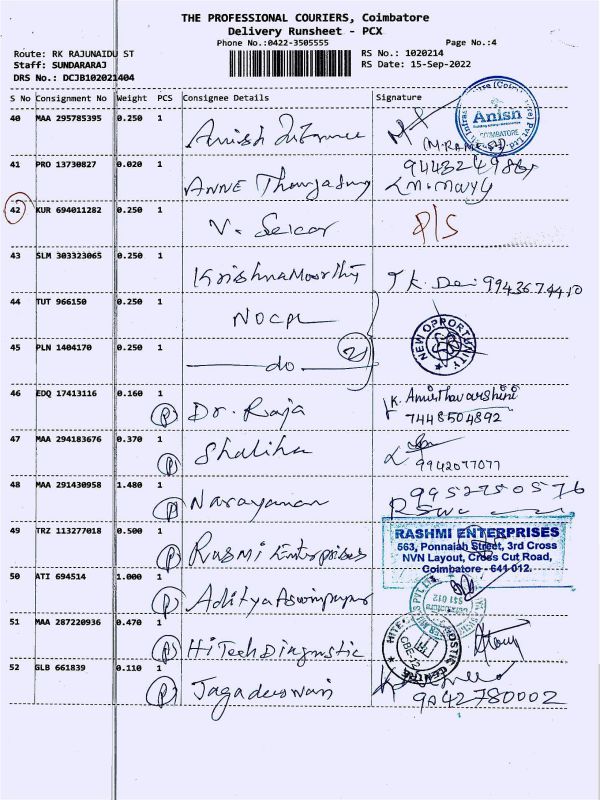 THE PROFESSIONAL COURIERS, Coimbatore
Delivery Runsheet - PCX
Phone No.:0422-3505555 Page No.:4
Route: RK RAJUNAIDU ST RS No.: 1020214
Staff: SUNDARARAJ RS Date: 15-Sep-2022
DRS No.: DCJB102021404
S No Consignment No Weight PCS Consignee Details Signature
40 MAA 295785395 0.250 1 Anish
Anisn
COIMBATORE
41 PRO 13730827 0.020 1 ANNE
42 KUR 694011282 0.250 1 V. Sekar P/S
43 SLM 303323065 0.250 1 Krishnamoorthy
44 TUT 966150 0.250 1 NOCPL
NEW OPPORTUNITY
45 PLN 1404170 0.250 1 do 2
46 EDQ 17413116 0.160 1 P Dr. Raja K. Amirthavarshini
7448504892
47 MAA 294183676 0.370 1 P Shaliha
9942077077
48 MAA 291430958 1.480 1 P Narayanan 9952750576
49 TRZ 113277018 0.500 1 P Rusmi Enterprises
RASHMI ENTERPRISES
563, Ponnaiah Street, 3rd Cross
NVN Layout, Cross Cut Road,
Coimbatore - 641 012.
50 ATI 694514 1.000 1 P Aditya
51 MAA 287220936 0.470 1 HiTech Diagnostic
52 GLB 661839 0.110 1 P Jagadeeswari
9042780002